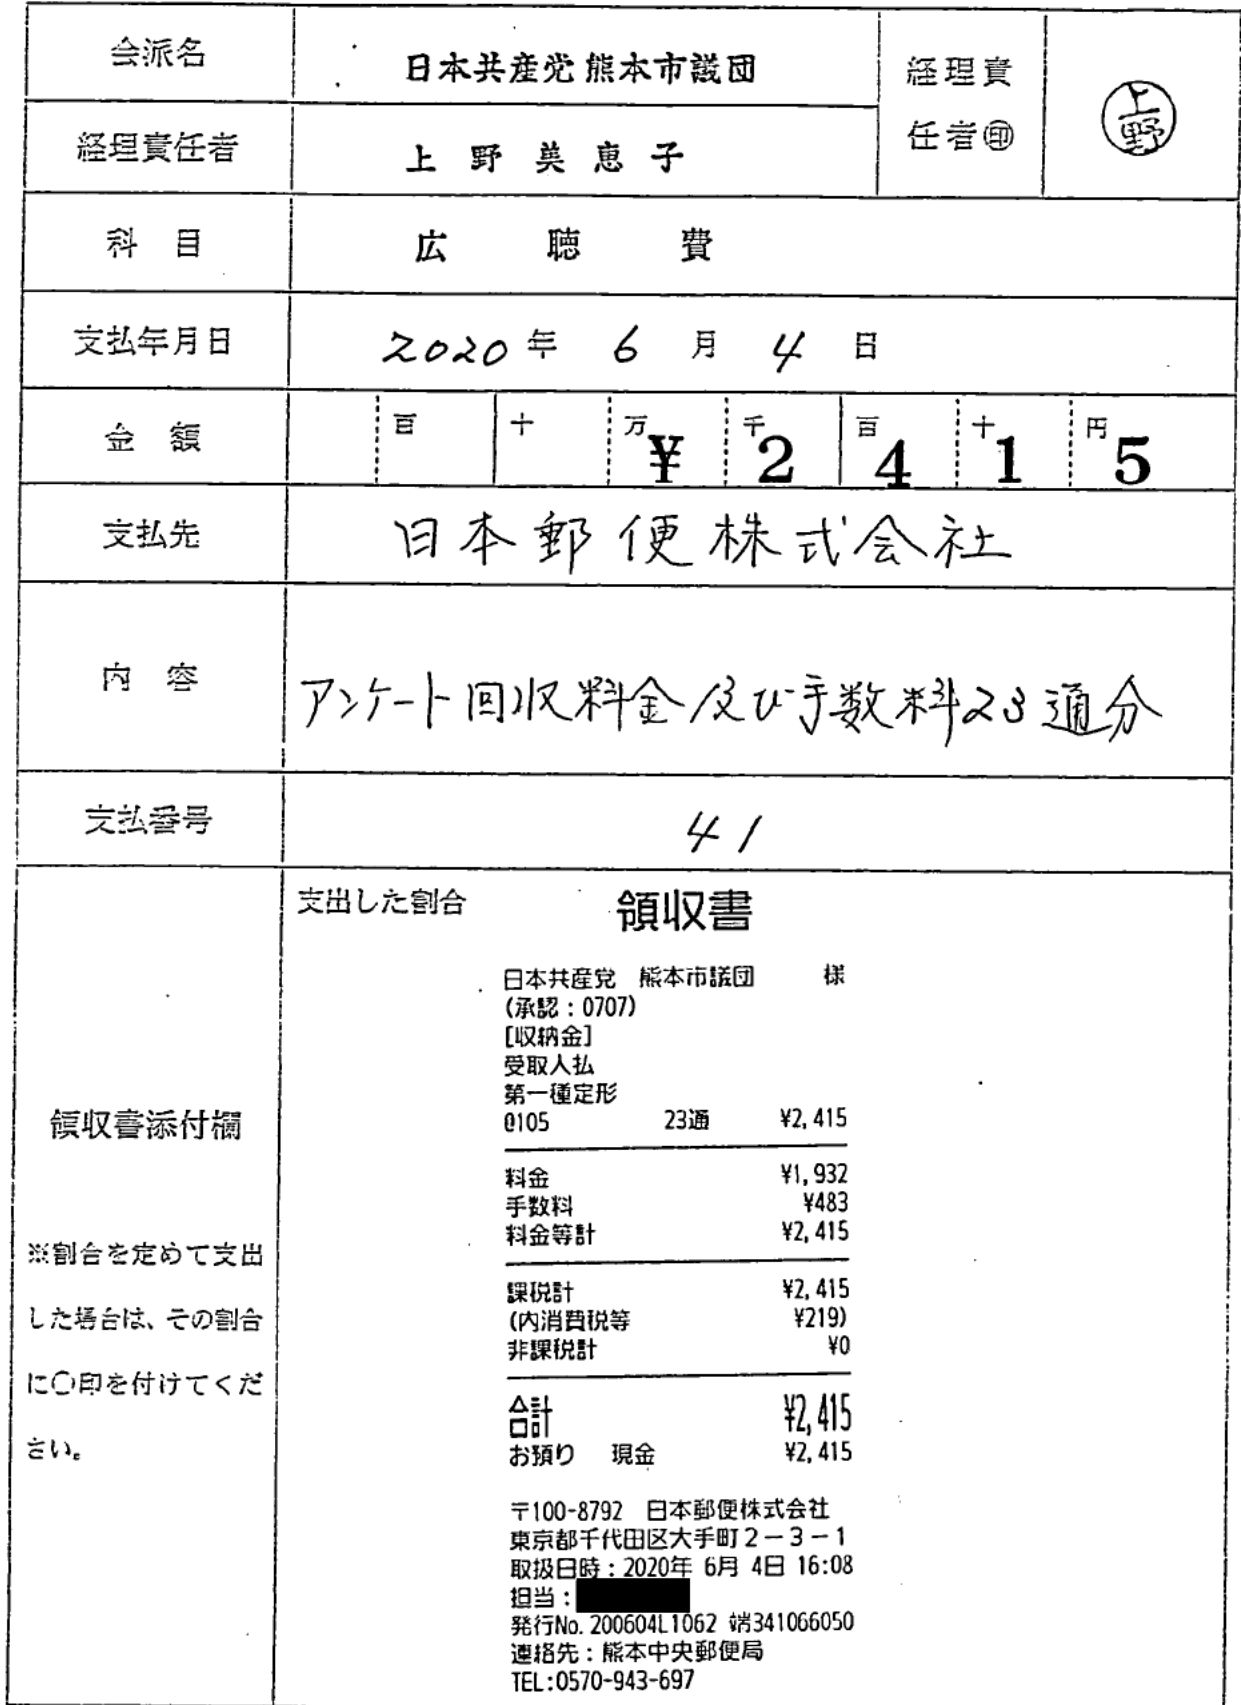 会派名 日本共産党 熊本市議団 経理責任者㊞ 上野
経理責任者 上野美恵子
科目 広聴費
支払年月日 2020年 6月 4日
金額 百 十 万 千 百 十 円
¥2415
支払先 日本郵便株式会社
内容 アンケート回収料金及び手数料23通分
支払番号 41
領収書添付欄
※割合を定めて支出
した場合は、その割合
に〇印を付けてくだ
さい。
支出した割合 領収書
日本共産党 熊本市議団 様
(承認:0707)
[収納金]
受取人払
第一種定形
@105 23通 ¥2,415
料金 ¥1,932
手数料 ¥483
料金等計 ¥2,415
課税計 ¥2,415
(内消費税等 ¥219)
非課税計 ¥0
合計 ¥2,415
お預り 現金 ¥2,415
〒100-8792 日本郵便株式会社
東京都千代田区大手町2-3-1
取扱日時:2020年 6月 4日 16:08
担当:
発行No.200604L1062 端341066050
連絡先:熊本中央郵便局
TEL:0570-943-697